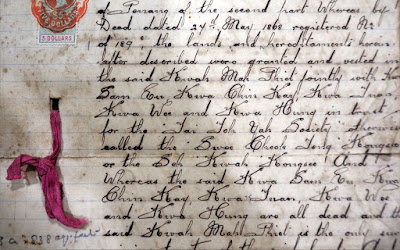 of Penang of the second part Whereas by
Deed dated 24th May 1868 registered No
of 189 the lands and hereditaments herein
after described were granted and vested in
the said Kwah Mah Phiet jointly with
Sam Eu Kwa Chin Kay Kwa Juan
Kwa Wee and Kwa Hung in trust
for the "Tai Toh Yah Society" otherwise
called the Swee Cheok Tong Kongsee
or the Soh Kwah Kongsee And
Whereas the said Kwa Sam Eu Kwa
Chin Kay, Kwa Juan, Kwa Wee
and Kwa Hung are all dead and the
said Kwah Mah Phiet is the only sur
3 DOLLARS
838